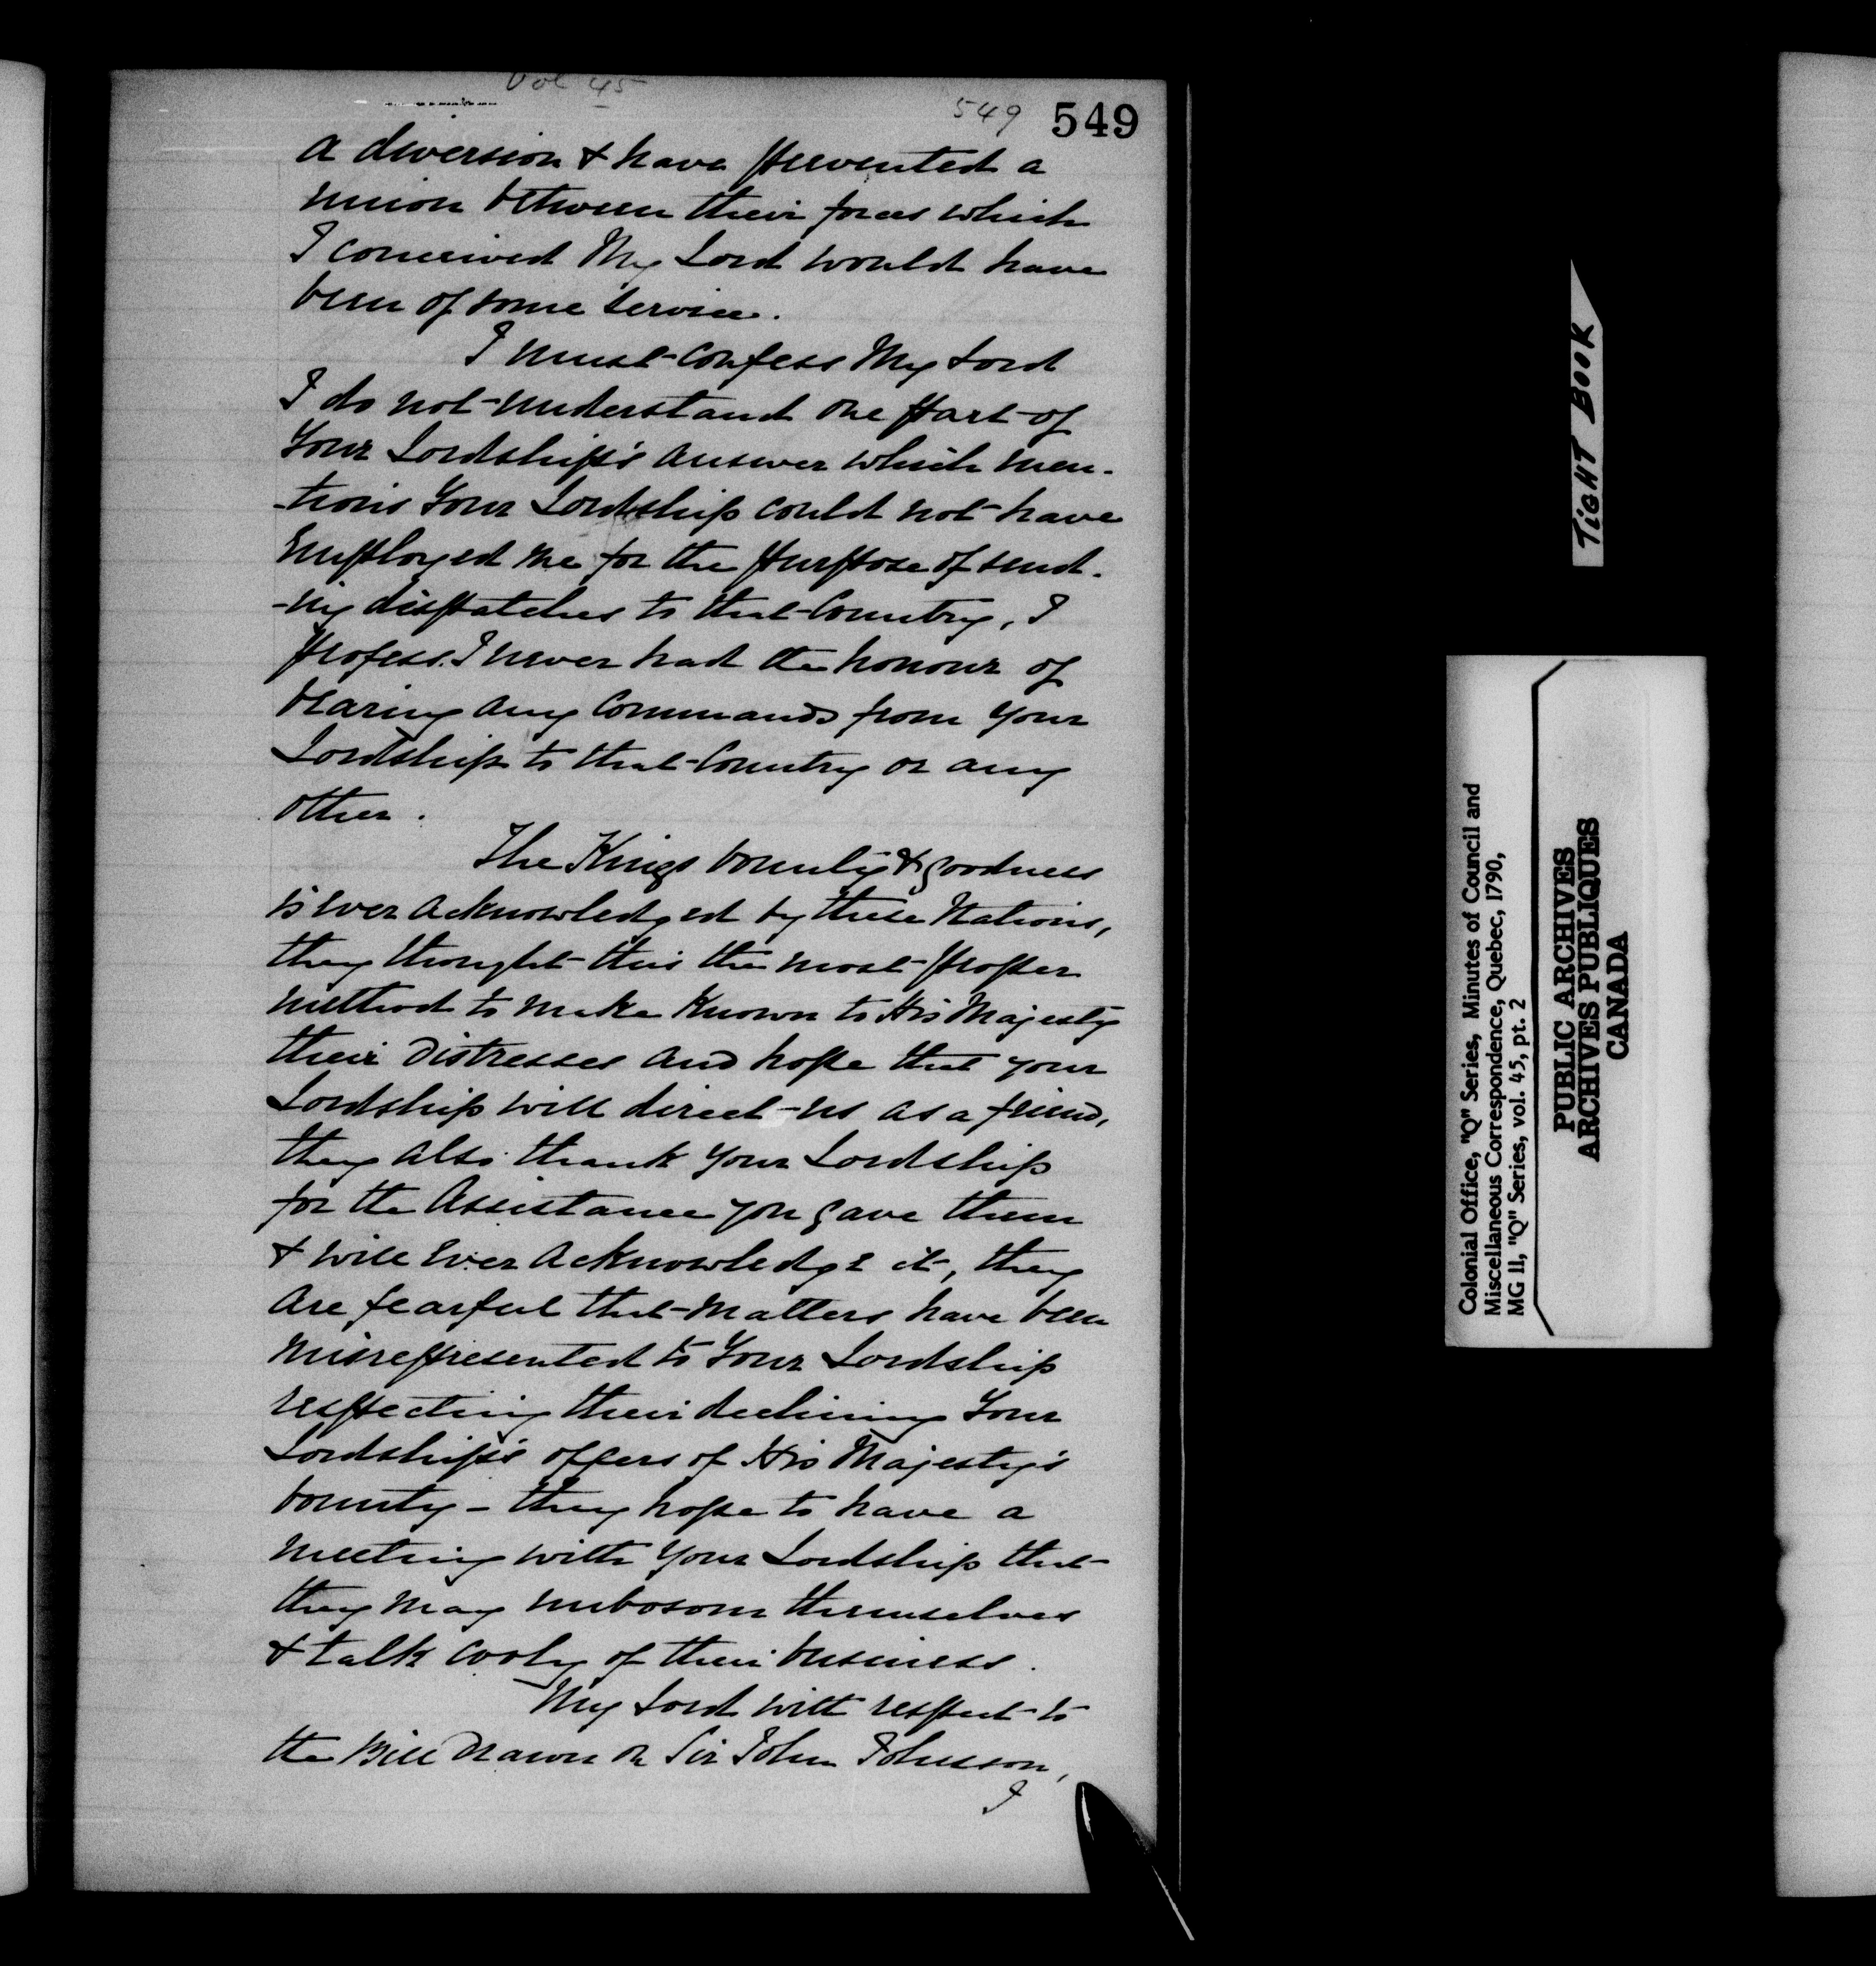 Vol 45
549 549
a diversion & have prevented a
union between their forces which
I conceived My Lord would have
been of some service.
I must confess My Lord
I do not understand one part of
Your Lordship's answer which men-
-tions Your Lordship could not have
Employed me for the purpose of send-
-ing dispatches to that Country, I
profess I never had the honour of
bearing any Commands from your
Lordship to that Country or any
other.
The Kings bounty & goodness
is ever acknowledged by these Nations,
they thought this the most proper
method to make known to His Majesty
their distresses and hope that your
Lordship will direct us as a friend,
they also thank your Lordship
for the Assistance you gave them
& will ever acknowledge it, they
are fearful that matters have been
misrepresented to Your Lordship
respecting their declining Your
Lordship's offers of His Majesty's
bounty - they hope to have a
meeting with your Lordship that
they may unbosom themselves
& talk cooly of their business.
My Lord with respect to
the Bill drawn on Sir John Johnson,
I
TIGHT BOOK
Colonial Office, "Q" Series, Minutes of Council and
Miscellaneous Correspondence, Quebec, 1790,
MG 11, "Q" Series, vol. 45, pt. 2
PUBLIC ARCHIVES
ARCHIVES PUBLIQUES
CANADA